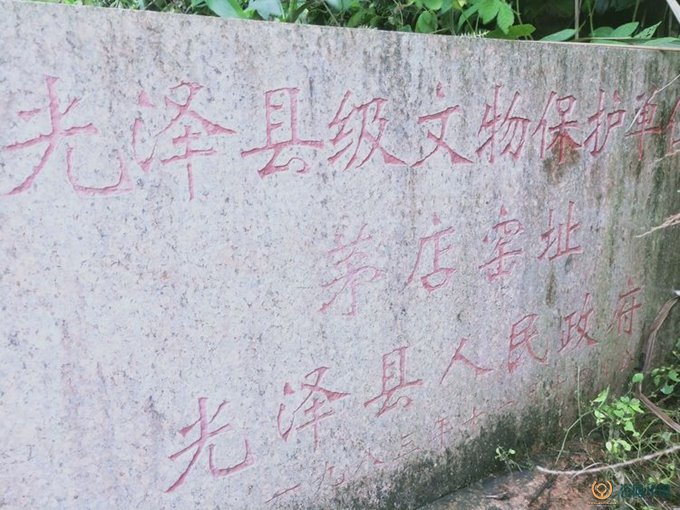 光泽县级文物保护单位
茅店窑址
光泽县人民政府
一九八三年十一